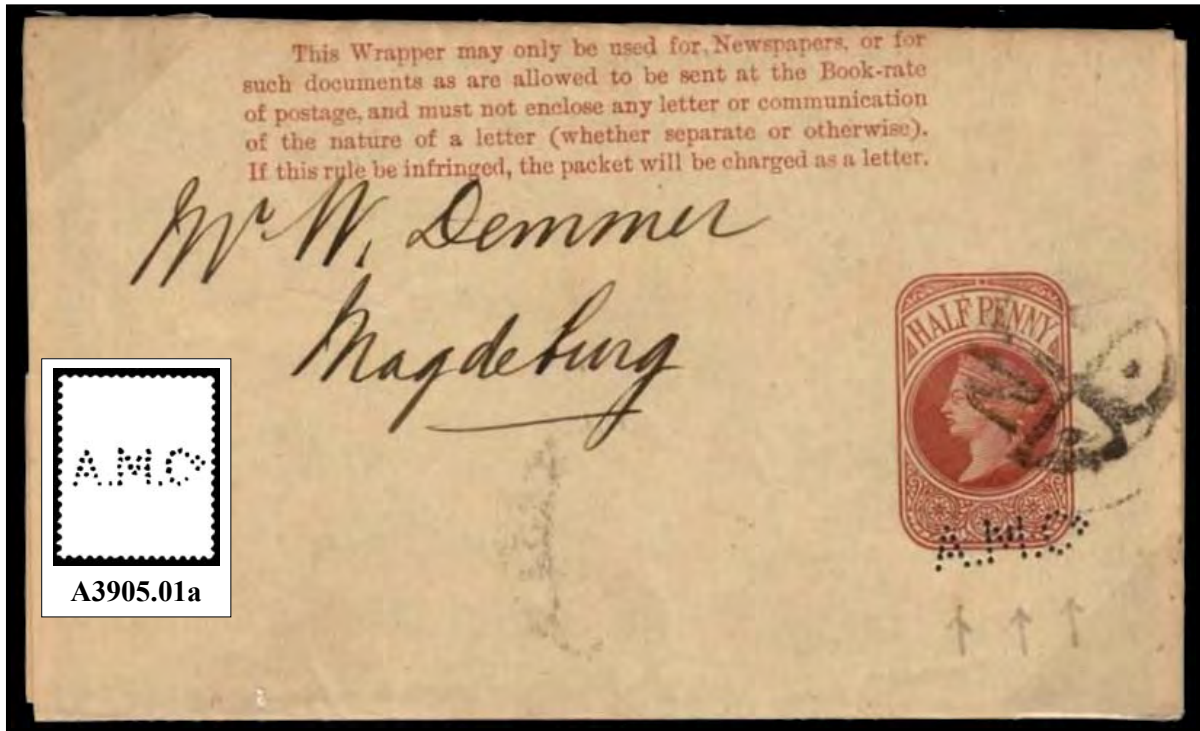 This Wrapper may only be used for, Newspapers, or for
such documents as are allowed to be sent at the Book-rate
of postage, and must not enclose any letter or communication
of the nature of a letter (whether separate or otherwise).
If this rule be infringed, the packet will be charged as a letter.
Mr W. Demmer
Magdeburg
HALFPENNY
A.M.Co
A.M.Co
A3905.01a